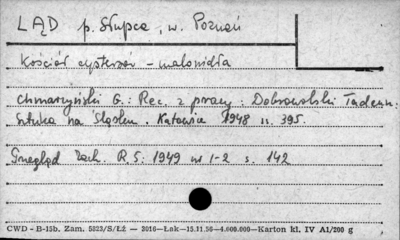 LĄD p. Słupca, w. Poznań
Kościół cystersów - malowidła
Chmarzyński G.: Rec. z pracy: Dobrowolski Tadeusz:
Sztuka na Śląsku. Katowice 1948 ss. 395.
Przegląd Zach. R. 5: 1949 nr 1-2 s. 142
CWD - B-15b. Zam. 5323/S/Łź — 3016—Łak—15.11.56—4.000.000—Karton kl. IV A1/200 g